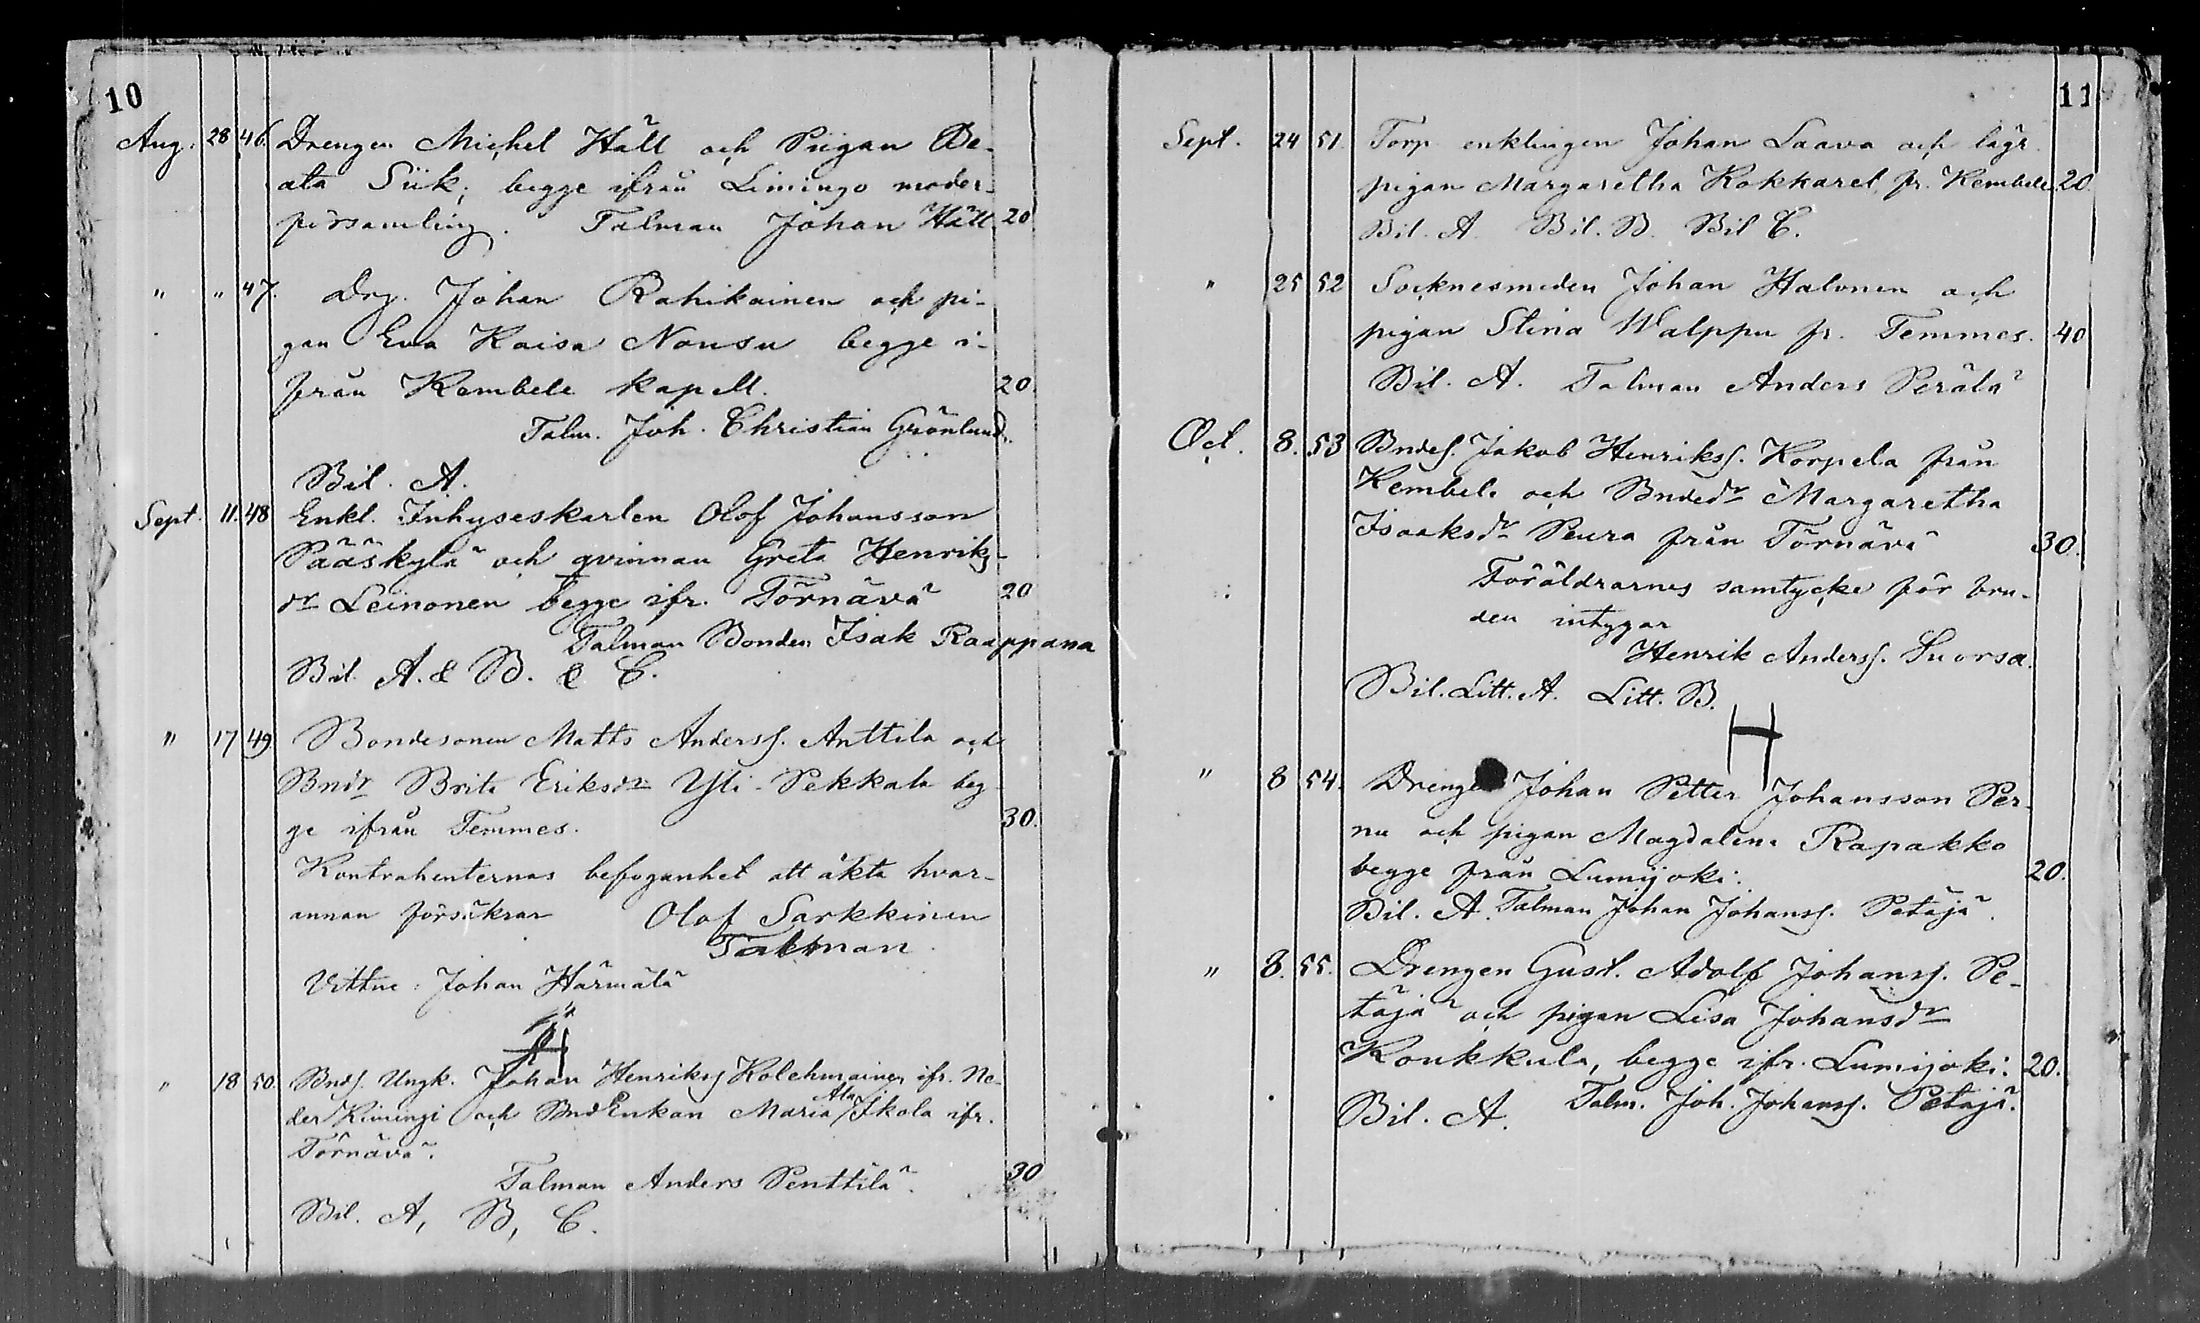 10
Aug. 28 46. Drengen Michel Häll och Piigan Be-
ata Siik, begge ifrån Limingo moder-
församling. Talman Johan Häll 20
" " 47. Drg. Johan Rahikainen och pi-
gan Eva Kaisa Nousu begge i-
från Kembele kapell. 20.
Talm. Joh. Christian Grönlund.
Bil. A.
Sept. 11. 48 Enkl. Inhyseskarlen Olof Johansson
Pääskylä och qvinnan Greta Henriks-
dr Leinonen begge ifr. Törnävä 20
Talman Bonden Isak Raappana
Bil. A. & B. & C.
" 17 49 Bondesonen Matts Anderss. Anttila och
Bndr Brita Eriksdr Yli-Pekkala beg-
ge ifrån Temmes. 30.
Kontrahenternas befogenhet att äkta hvar-
annan försäkrar Olof Sarkkinen
Talman
Vittne: Johan Härmälä
" 18 50. Bnds. Ungk. Johan Henrikss Kolehmainen ifr. Ne-
der Kiminge och BndEnkan Maria Ala Ikola ifr.
Törnävä.
Talman Anders Penttilä. 30
Bil. A, B, C.
11
Sept. 24 51. Torp enklingen Johan Laava och lägr.
pigan Margaretha Kokkarel fr. Kembele 20.
Bil. A. Bil. B. Bil C.
" 25 52 Socknesmeden Johan Halonen och
pigan Stina Walppu fr. Temmes. 40
Bil. A. Talman Anders Perälä
Oct. 8. 53 Bndes. Jakob Henrikss. Korpela från
Kembele och Bndedr Margaretha
Isaaksdr Peura från Törnävä 30.
Föräldrarnes samtycke för bru-
den intygar
Henrik Anderss. Suorsa.
Bil. Litt. A. Litt. B.
" 8 54. Drengen Johan Petter Johansson Per-
nu och pigan Magdalena Rapakko
begge från Lumijoki. 20.
Bil. A. Talman Johan Johanss. Petäjä.
" 8. 55. Drengen Gust. Adolf Johanss. Pe-
täjä och pigan Lisa Johansdr
Koukkula, begge ifr. Lumijoki. 20.
Bil. A. Talm. Joh. Johanss. Petäjä.